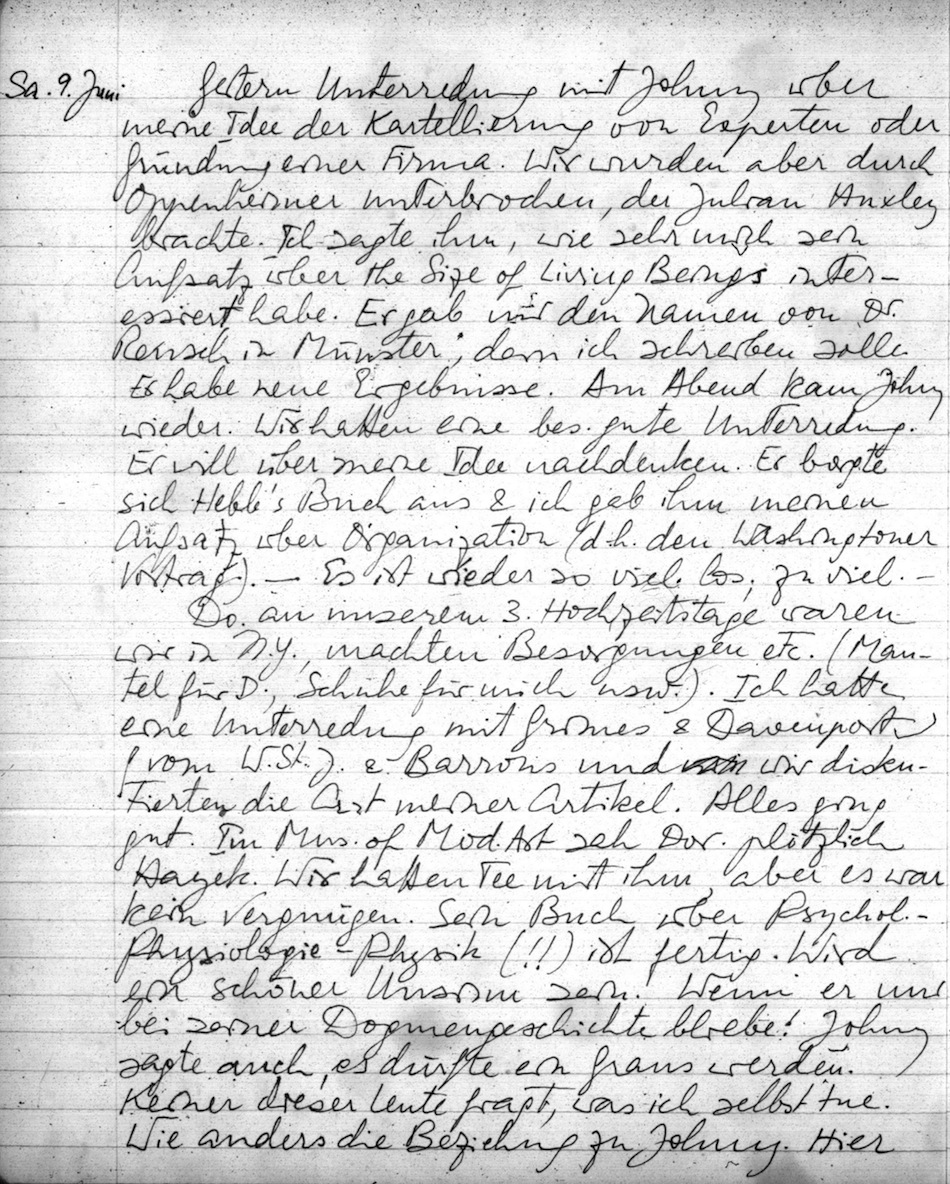 Sa. 9. Juni Gestern Unterredung mit Johnny über
meine Idee der Kartellierung von Experten oder
Gründung einer Firma. Wir wurden aber durch
Oppenheimer unterbrochen, der Julian Huxley
brachte. Ich sagte ihm, wie sehr mich sein
Aufsatz über the Size of Living Beings inter-
essiert habe. Er gab mir den Namen von Dr.
Rensch in Münster, dem ich schreiben solle.
Er habe neue Ergebnisse. Am Abend kam Johnny
wieder. Wir hatten eine bes. gute Unterredung.
Er will über meine Idee nachdenken. Er borgte
sich Hebb's Buch aus & ich gab ihm meinen
Aufsatz über Organization (d.h. den Washingtoner
Vortrag). — Es ist wieder so viel los, zu viel. –
Do. an unserem 3. Hochzeitstage waren
wir in N.Y., machten Besorgungen etc. (Man-
tel für D., Schuhe für mich usw.). Ich hatte
eine Unterredung mit Grimes & Davenport
(vom W.St.J. & Barrons und wir disku-
tierten die Art meiner Artikel. Alles ging
gut. Im Mus. of Mod. Art sah Dor. plötzlich
Hayek. Wir hatten Tee mit ihm, aber es war
kein Vergnügen. Sein Buch über Psychol.-
Physiologie-Physik (!!) ist fertig. Wird
ein schöner Unsinn sein! Wenn er nur
bei seiner Dogmengeschichte bliebe! Johnny
sagte auch, es dürfte ein Graus werden.
Keiner dieser Leute fragt, was ich selbst tue.
Wie anders die Beziehung zu Johnny. Hier